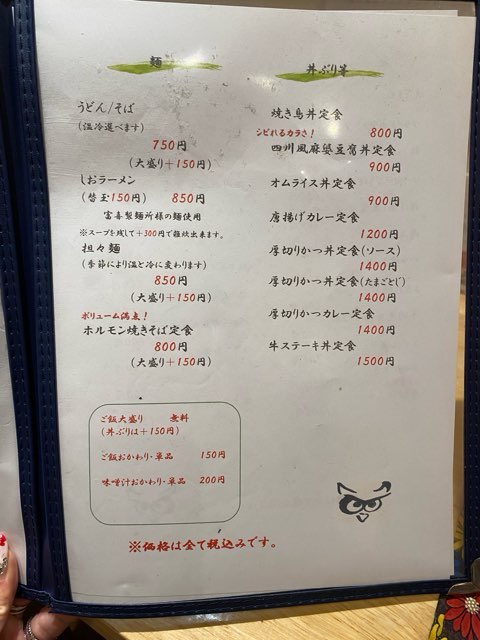 麺
うどん/そば
(温冷選べます)
750円
(大盛り+150円)
しおラーメン
(替玉150円) 850円
富喜製麺所様の麺使用
※スープを残して+300円で雑炊出来ます。
担々麺
(季節により温と冷に変わります)
850円
(大盛り+150円)
ボリューム満点!
ホルモン焼きそば定食
800円
(大盛り+150円)
ご飯大盛り 無料
(丼ぶりは+150円)
ご飯おかわり・単品 150円
味噌汁おかわり・単品 200円
丼ぶり等
焼き鳥丼定食
800円
シビれるカラさ!
四川風麻婆豆腐丼定食
900円
オムライス丼定食
900円
唐揚げカレー定食
1200円
厚切りかつ丼定食(ソース)
1400円
厚切りかつ丼定食(たまごとじ)
1400円
厚切りかつカレー定食
1400円
牛ステーキ丼定食
1500円
※価格は全て税込みです。